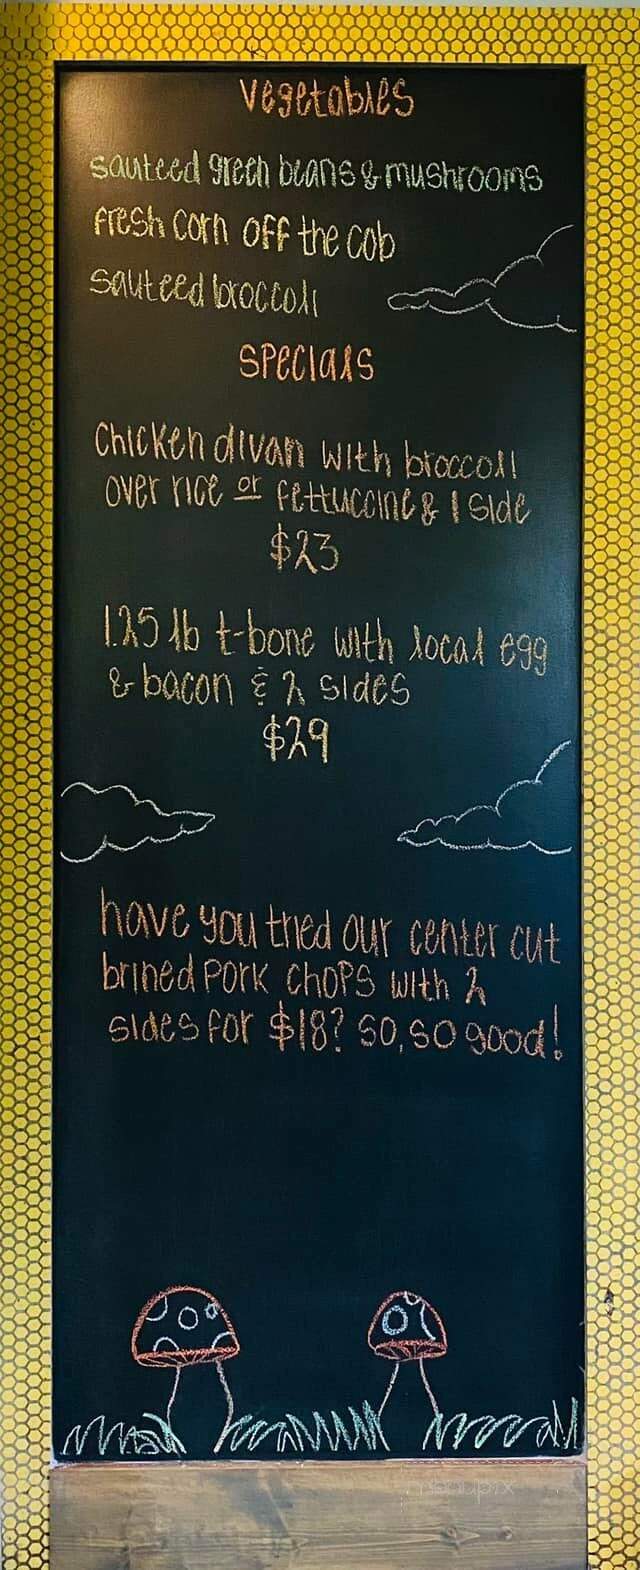 vegetables
sauteed green beans & mushrooms
fresh corn off the cob
sauteed broccoli
specials
chicken divan with broccoli
over rice or fettuccine & 1 side
$23
1.25 lb t-bone with local egg
& bacon & 2 sides
$29
have you tried our center cut
brined pork chops with 2
sides for $18? so, so good!